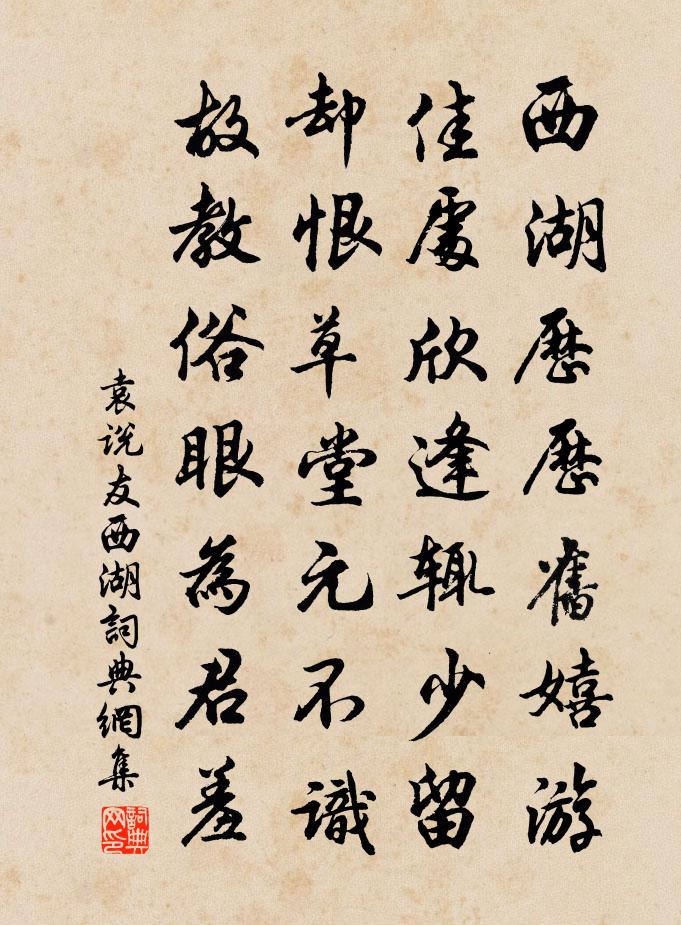 西湖歷歷舊嬉游
佳處欣逢輒少留
却恨草堂元不識
故教俗眼為君羞
袁説友西湖詞典網集
詞典网印